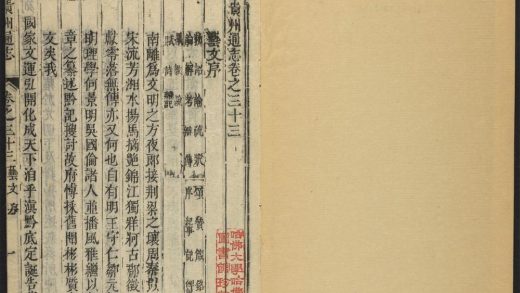 貴州通志卷之三十三
藝文序
南離爲文明之方夜郎接荆梁之壤周秦以
朱流芳湘水揚馬摛艷錦江獨牂牁古郡徵
獻寥落無傳亦又何也自有明王守仁鄒元
明理學何景明吳國倫諸人並播風雅繼以
章之纂述黔記搜討故府博採舊聞彬彬質
文矣我
國家文運弘開化成天下洎乎滇黔底定誕告
州通志 卷之三十三 藝文序 一
哈佛大學哈佛
圖書館珍